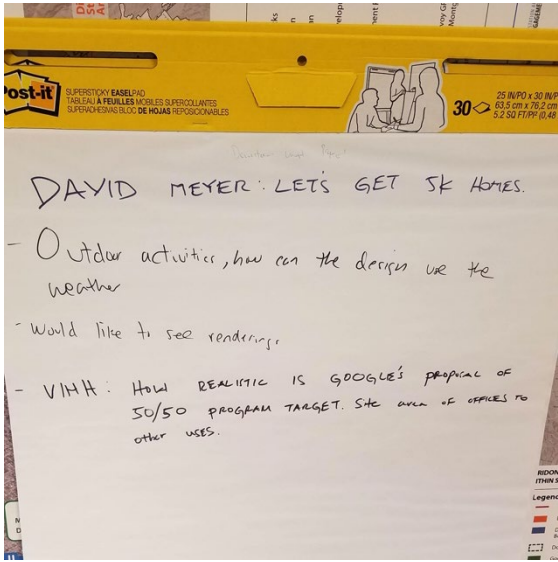 Post-it
SUPERSTICKY EASELPAD
TABLEAU À FEUILLES MOBILES SUPERCOLLANTES
SUPERADHESIVAS BLOC DE HOJAS REPOSICIONABLES
30
25 IN/PO x 30 IN/P
63,5 cm x 76,2 cm
5.2 SQ FT/PI² (0,48
DAVID MEYER: LET'S GET 5K HOMES.
- Outdoor activities, how can the design use the
weather
- Would like to see renderings
- VIHH: HOW REALISTIC IS GOOGLE'S PROPOSAL OF
50/50 PROGRAM TARGET. Site area of OFFICES TO
other USES.
RIDON
ITHIN S
Legend